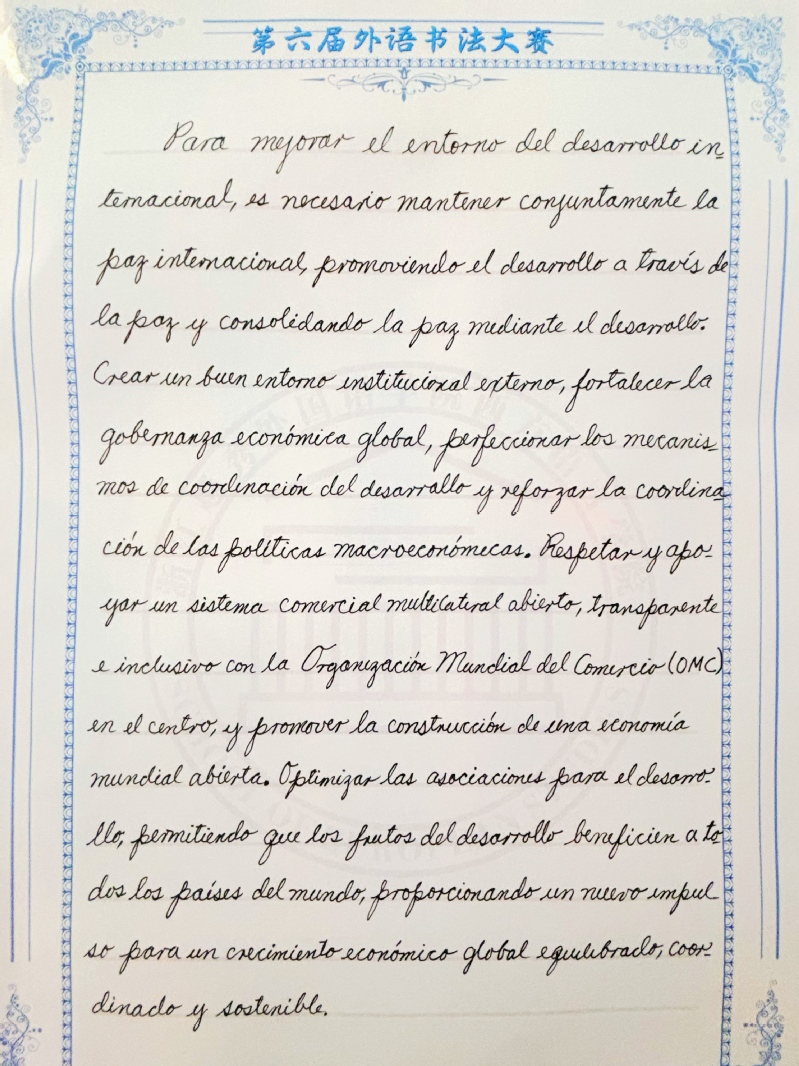 第六届外语书法大赛
Para mejorar el entorno del desarrollo in-
ternacional, es necesario mantener conjuntamente la
paz internacional, promoviendo el desarrollo a través de
la paz y consolidando la paz mediante el desarrollo.
Crear un buen entorno institucional externo, fortalecer la
gobernanza económica global, perfeccionar los mecanis-
mos de coordinación del desarrollo y reforzar la coordina
ción de las políticas macroeconómecas. Respetar y apo-
yar un sistema comercial multilateral abierto, transparente
e inclusivo con la Organización Mundial del Comercio (OMC)
en el centro, y promover la construcción de una economía
mundial abierta. Optimizar las asociaciones para el desarro-
llo, permitiendo que los frutos del desarrollo beneficien a to-
dos los países del mundo, proporcionando un nuevo impul
so para un crecimiento económico global equilibrado, coor-
dinado y sostenible.